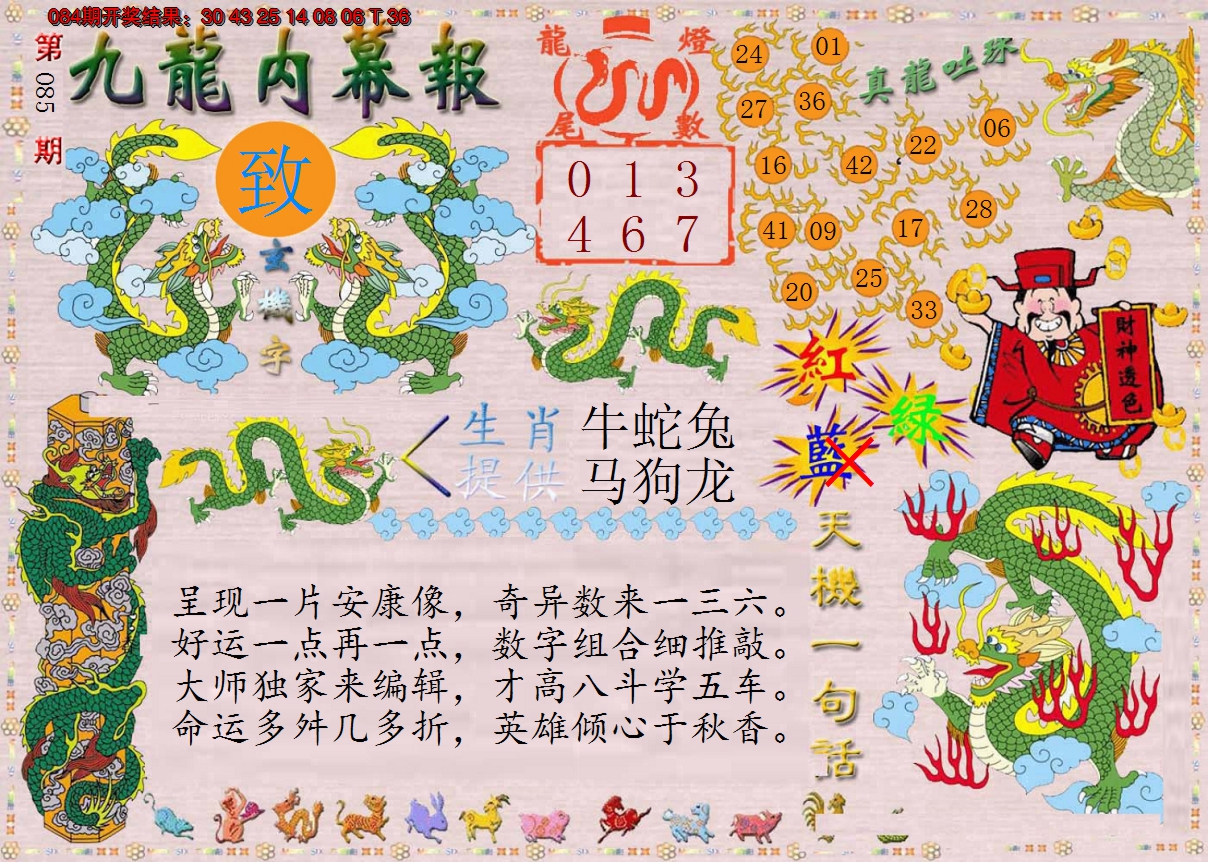 084期开奖结果：30 43 25 14 08 06 T 36
第085期
九龍内幕報
致
玄機字
龍燈尾數
0 1 3
4 6 7
真龍吐珠
24 01
27 36
22 06
16 42
28
41 09 17
25
20 33
財神透色
紅
綠
藍
生肖 牛蛇兔
提供 马狗龙
天機一句話
呈现一片安康像，奇异数来一三六。
好运一点再一点，数字组合细推敲。
大师独家来编辑，才高八斗学五车。
命运多舛几多折，英雄倾心于秋香。